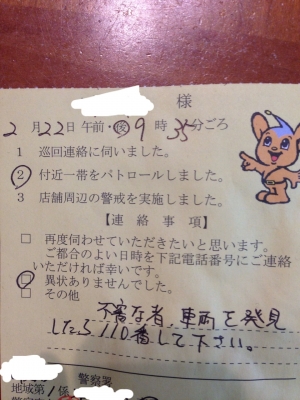 様
2月22日 午前・後 9時35分ごろ
1 巡回連絡に伺いました。
2 付近一帯をパトロールしました。
3 店舗周辺の警戒を実施しました。
【連絡事項】
□ 再度伺わせていただきたいと思います。
ご都合のよい日時を下記電話番号にご連絡
いただければ幸いです。
□ 異状ありませんでした。
□ その他
不審な者、車両を発見
したら110番して下さい。
警察署
地域第1係